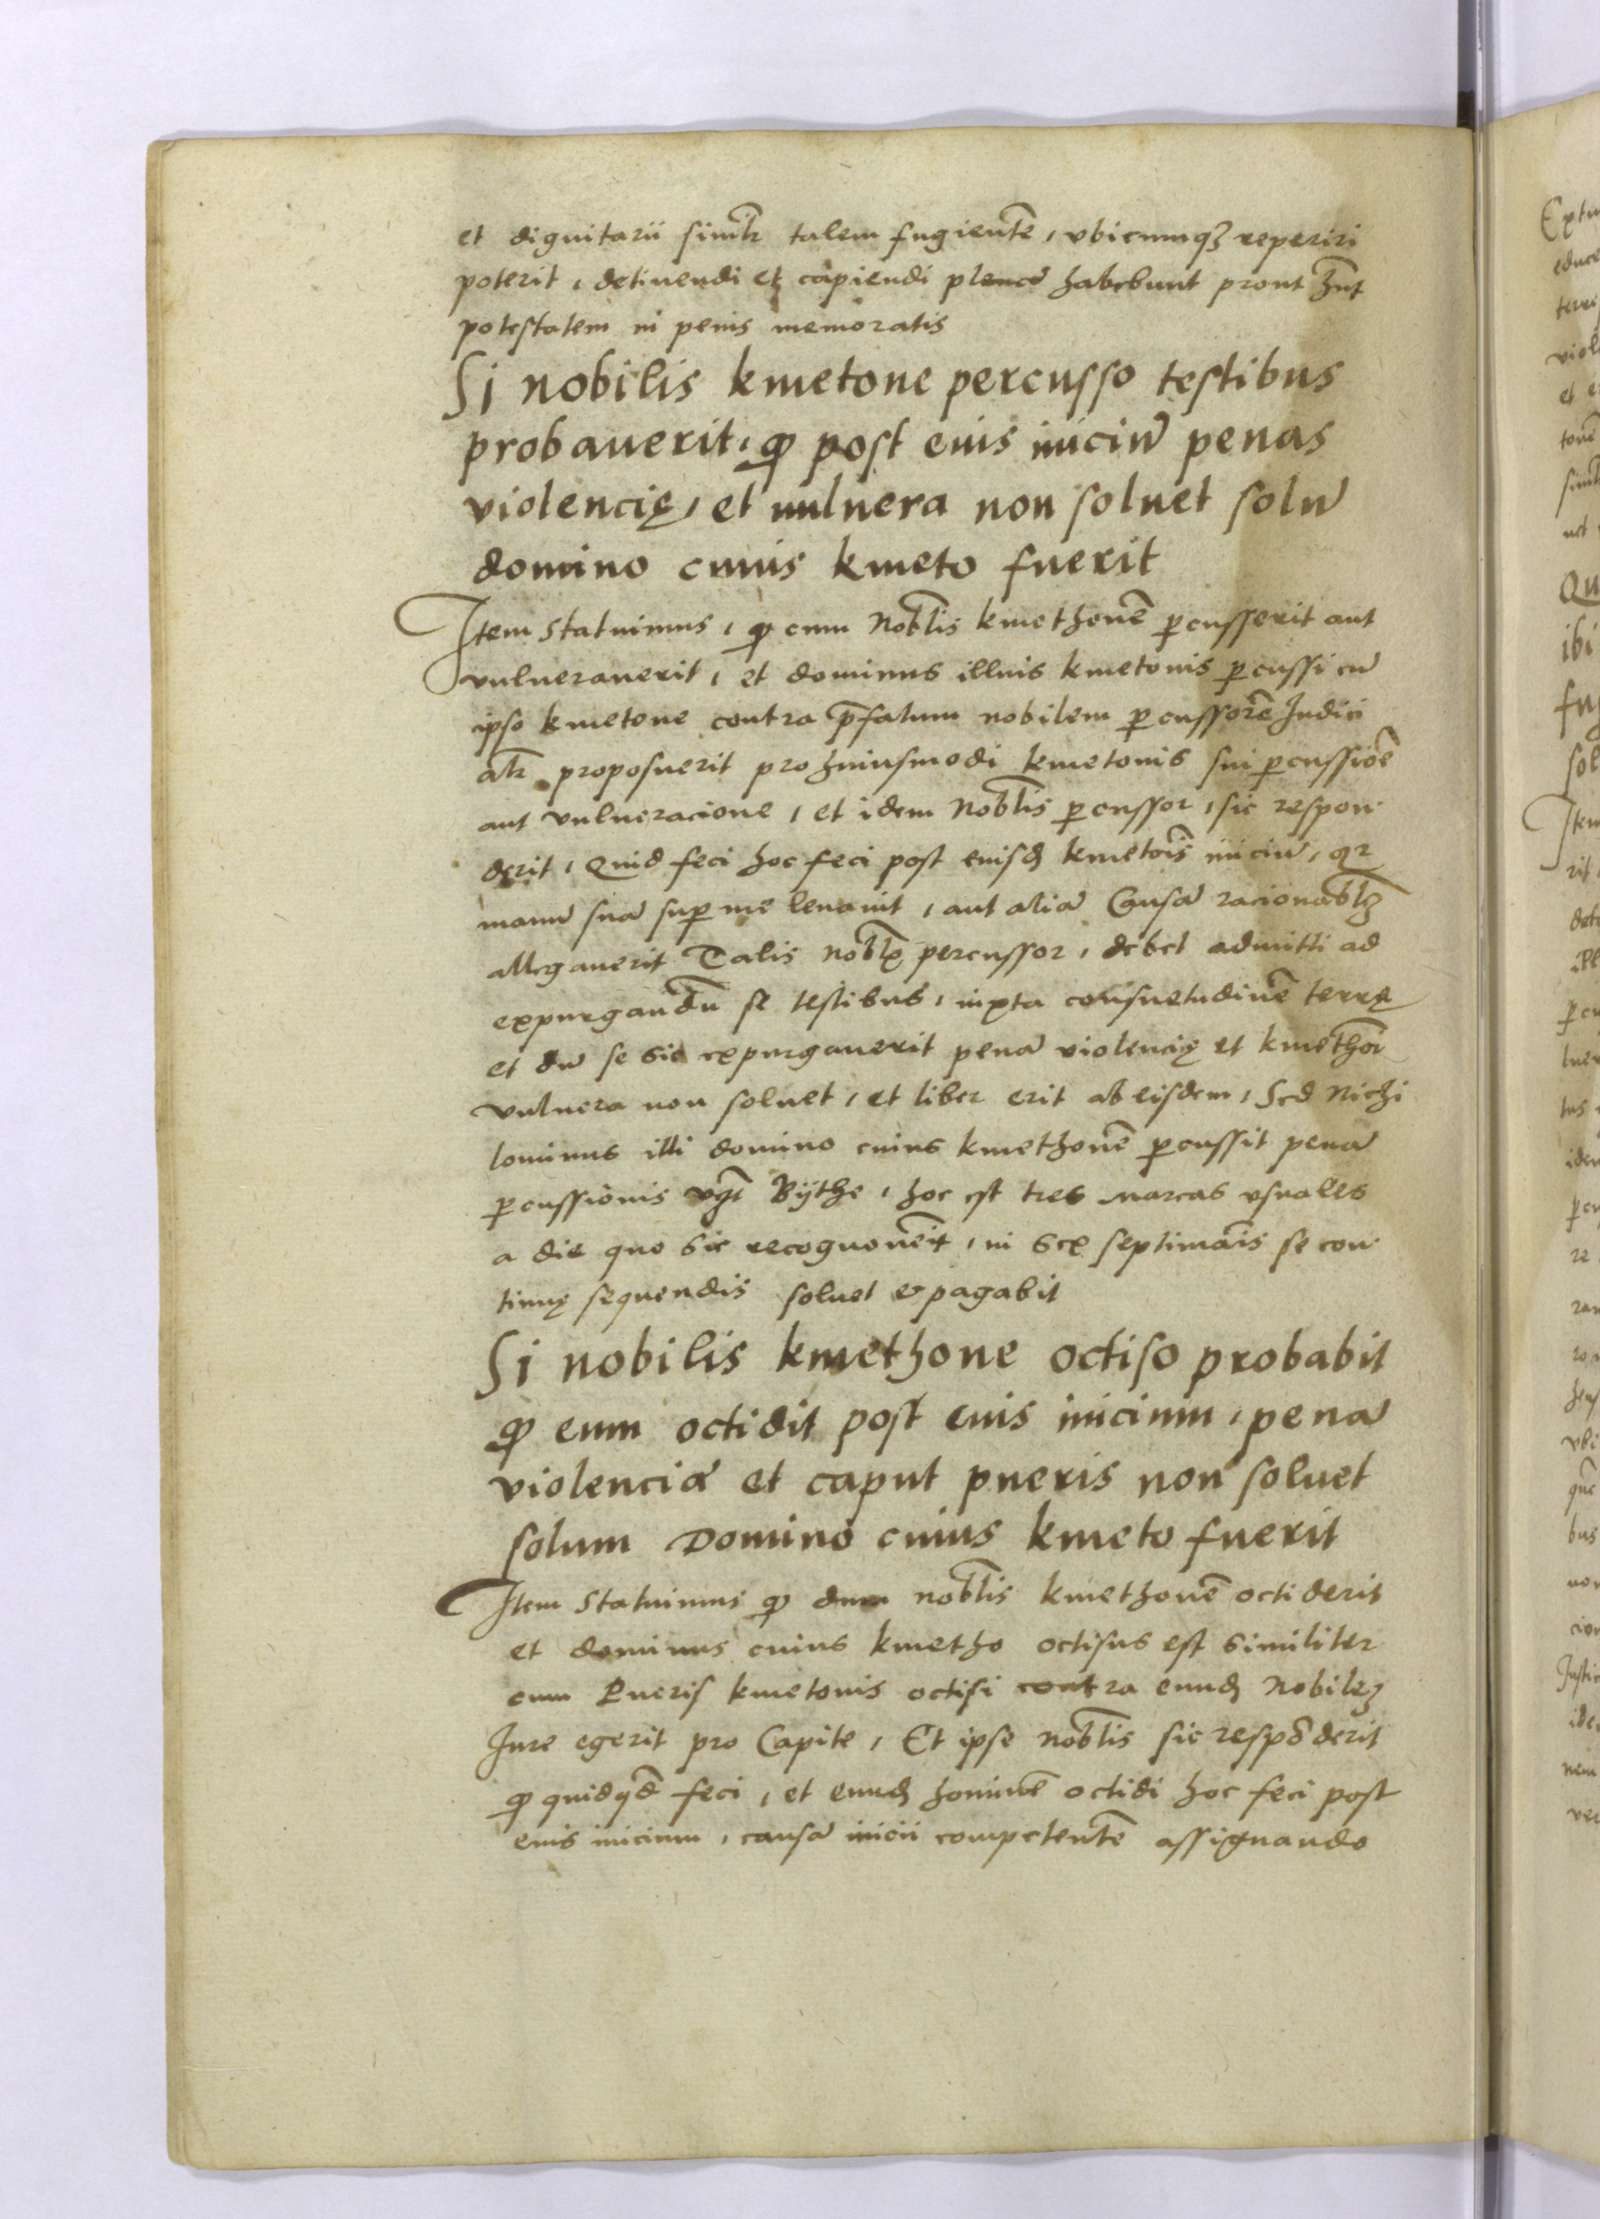 et dignitarii simlr talem fugientē, vbicumqꝫ reperiri
poterit, detinendi et capiendi plenā habebunt prout hn̄t
potestatem in penis memoratis
Si nobilis kmetone percusso testibus
probauerit, ꝙ post eius iniciū penas
violencię, et uulnera non soluet solū
domino cuius kmeto fuerit
Item Statuimus, ꝙ cum Nobl̄is kmethonē ꝑcusserit aut
vulnerauerit, et dominus illius kmetonis ꝑcussi cū
ipso kmetone contra p̄fatum nobilem ꝑcussorē Iudici
alr proposuerit pro huiusmodi kmetonis sui ꝑcussiōe
aut vulneracione, et idem Nobl̄is ꝑcussor, sic respon
derit, Quid feci hoc feci post eiusdꝫ kmetōis iniciū, qr
manū suā suꝑ me leuauit, aut aliā Causā racionabl̄ꝫ
allegauerit Talis nobl̄ꝫ percussor, debet admitti ad
expurgandū se testibus, iuxta consuetudinē terrę
et dū se sic expurgauerit penā violencię et kmethōi
vulnera non soluet, et liber erit ab eisdem, Sed Nichi
lominus illi domino cuius kmethonē ꝑcussit penā
ꝑcussionis Bijthe, hoc est tres marcas vsuales
a die quo sic recognouēit, in sex septimāis se con
tinuę sequendis soluet et pagabit
Si nobilis kmethone octiso probabit
ꝙ eum octidit post eius inicium, penā
violenciā et caput pueris non soluet
solum Domino cuius kmeto fuerit
Item Statuimus ꝙ dum nobl̄is kmethonē octiderit
et dominus cuius kmetho octisus est similiter
cum Pueris kmetonis octisi contra eundꝫ Nobileꝫ
Iure egerit pro Capite, Et ipse nobl̄is sic respōderit
ꝙ quidqd̄ feci, et eundꝫ hominē octidi hoc feci post
eius inicium, causā inicii competentē assignando